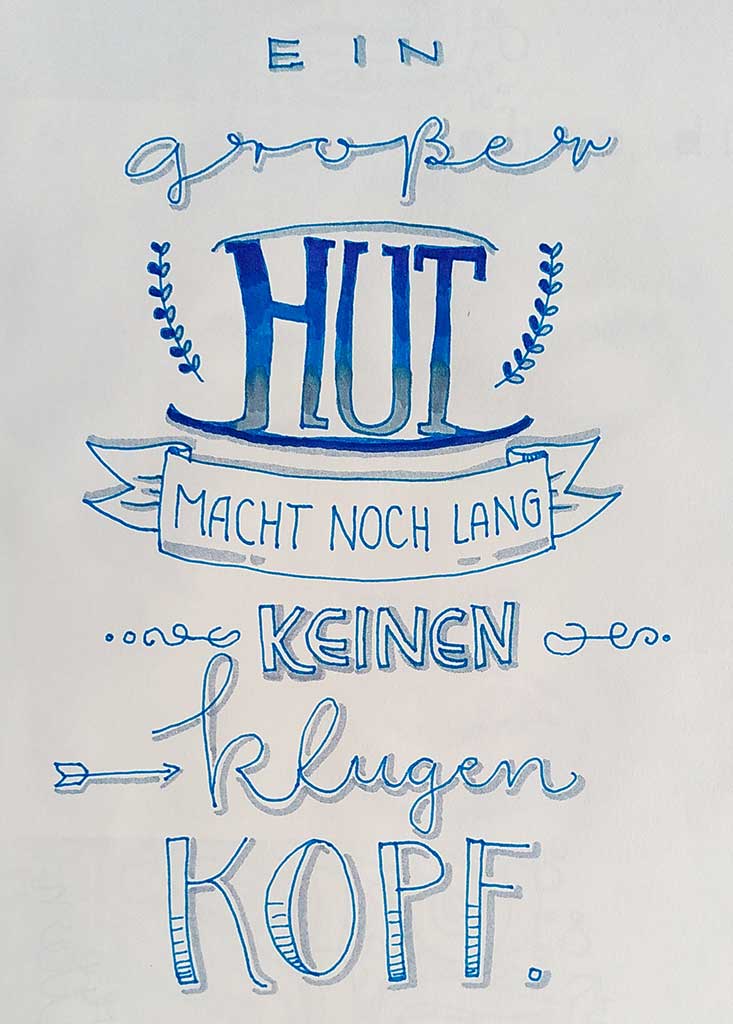 EIN
großer
HUT
MACHT NOCH LANG
KEINEN
klugen
KOPF.